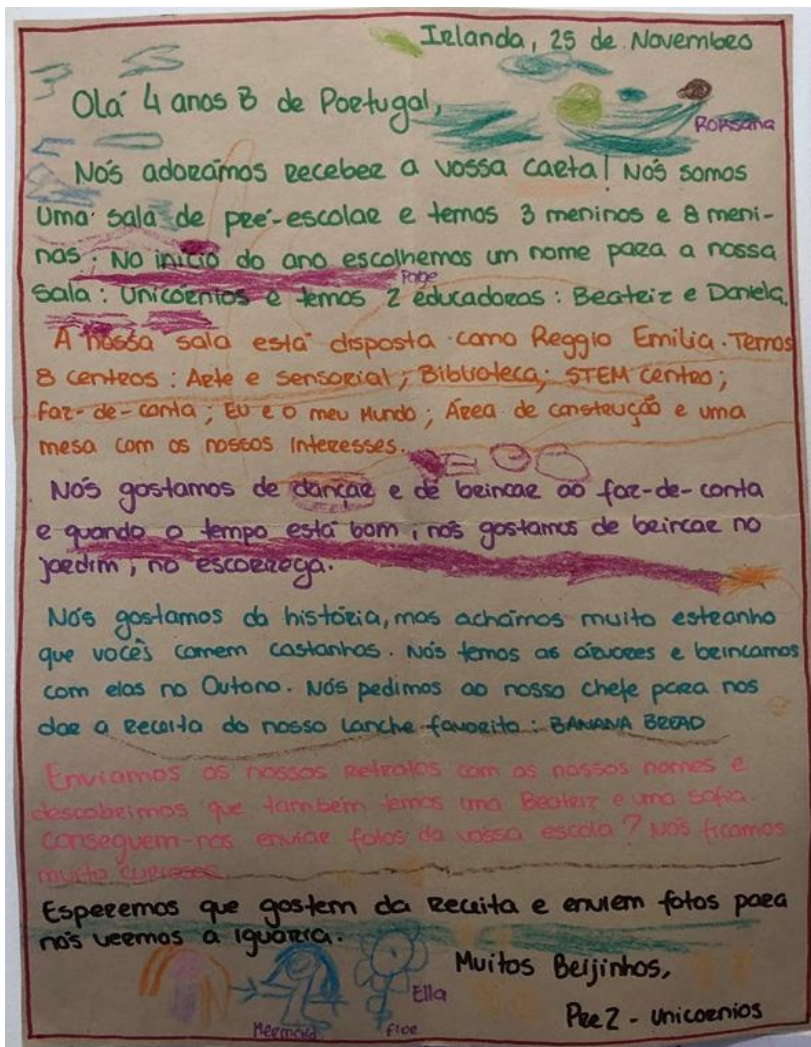 Irlanda, 25 de Novembro
Olá 4 anos B de Portugal,
Roksana
Nós adorámos receber a vossa carta! Nós somos
uma sala de pré-escolar e temos 3 meninos e 8 meni-
nas. No início do ano escolhemos um nome para a nossa
Paige
sala: Unicórnios e temos 2 educadoras: Beatriz e Daniela.
A nossa sala está disposta como Reggio Emilia. Temos
8 centros: Arte e sensorial; Biblioteca; STEM centro;
faz-de-conta; Eu e o meu Mundo; Área de construção e uma
mesa com os nossos interesses.
Nós gostamos de dançar e de brincar ao faz-de-conta
e quando o tempo está bom, nós gostamos de brincar no
jardim, no escorrega.
Nós gostamos da história, mas achámos muito estranho
que vocês comem castanhas. Nós temos as árvores e brincamos
com elas no Outono. Nós pedimos ao nosso chefe para nos
dar a receita do nosso lanche favorito: BANANA BREAD
Enviamos os nossos retratos com os nossos nomes e
descobrimos que também temos uma Beatriz e uma Sofia.
Conseguem-nos enviar fotos da vossa escola? Nós ficamos
muito curiosos.
Esperemos que gostem da receita e enviem fotos para
nós vermos a iguaria.
Muitos Beijinhos,
Ella
Pre 2 - Unicornios
Mermaid
flor